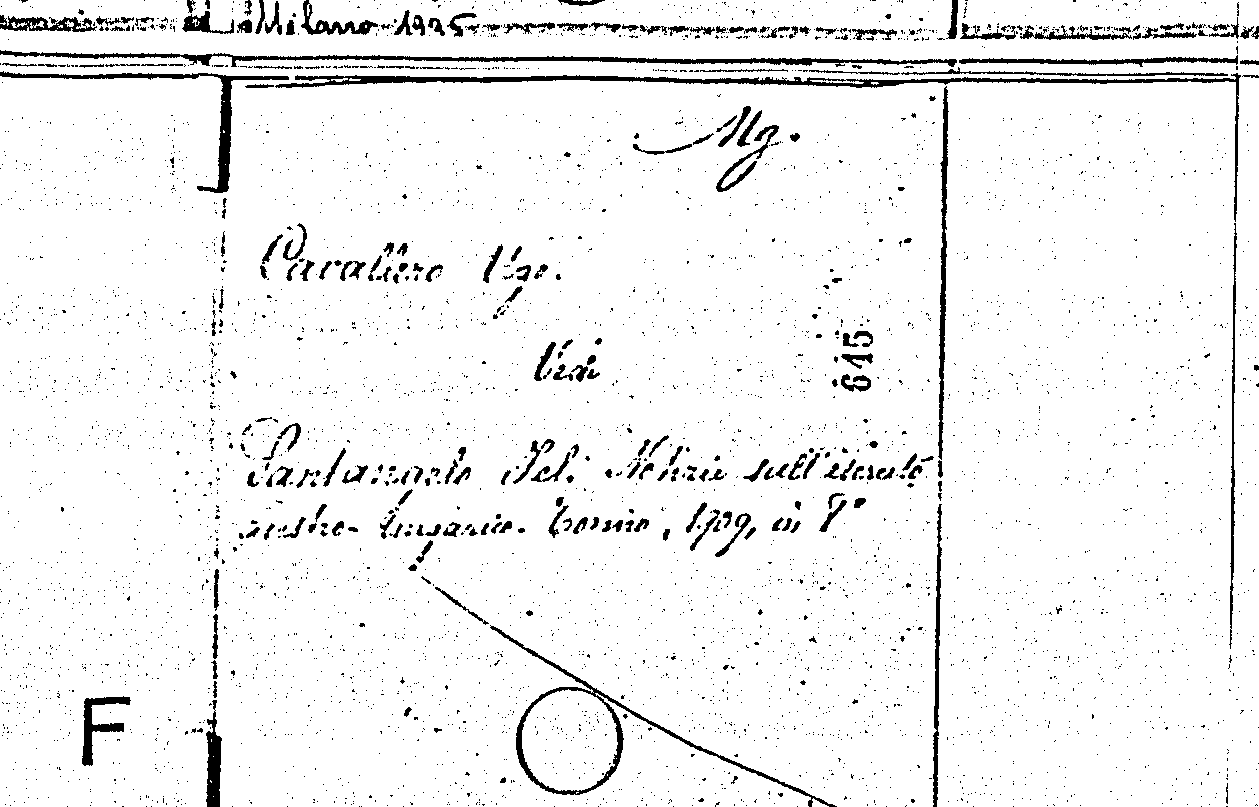 Milano 1925
Mg.
Cavallero Ugo.
645
Vedi
Santangelo Fel: Notizie sull'esercito
austro-ungarico. Torino, 1909, in 8°
F